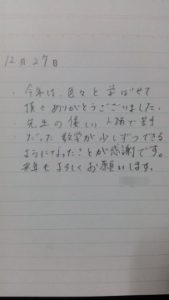 12月27日
・今年は、色々と学ばせて
頂きありがとうございました。
・先生の優しい人柄で苦手
だった数学が少しずつできる
ようになったことが感謝です。
来年もよろしくお願いします。